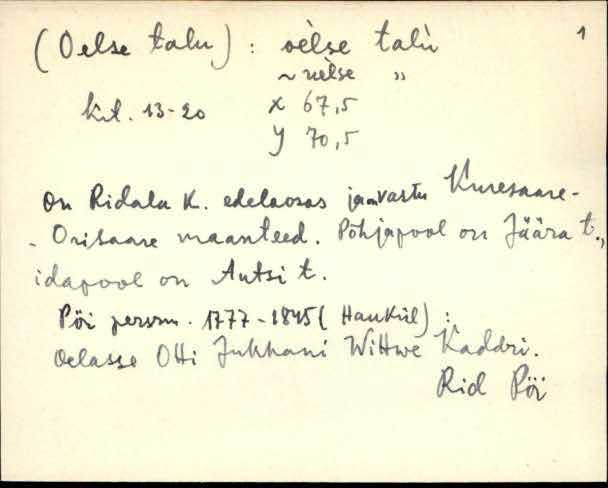 (Oelse talu): oèlse talù 1
~ uèlse "
kit. 13-20 x 67,5
y 70,5
On Ridala K. edelaosas vastu Kuresaare-
- Orisaare maanteed. Põhjapool on Jäära t.,
idapool on Antsi t.
Pöi persrn. 1777-1845 (Hankül):
Oelasse Otti Juhhani Wittwe Kaddri.
Rid Pöi